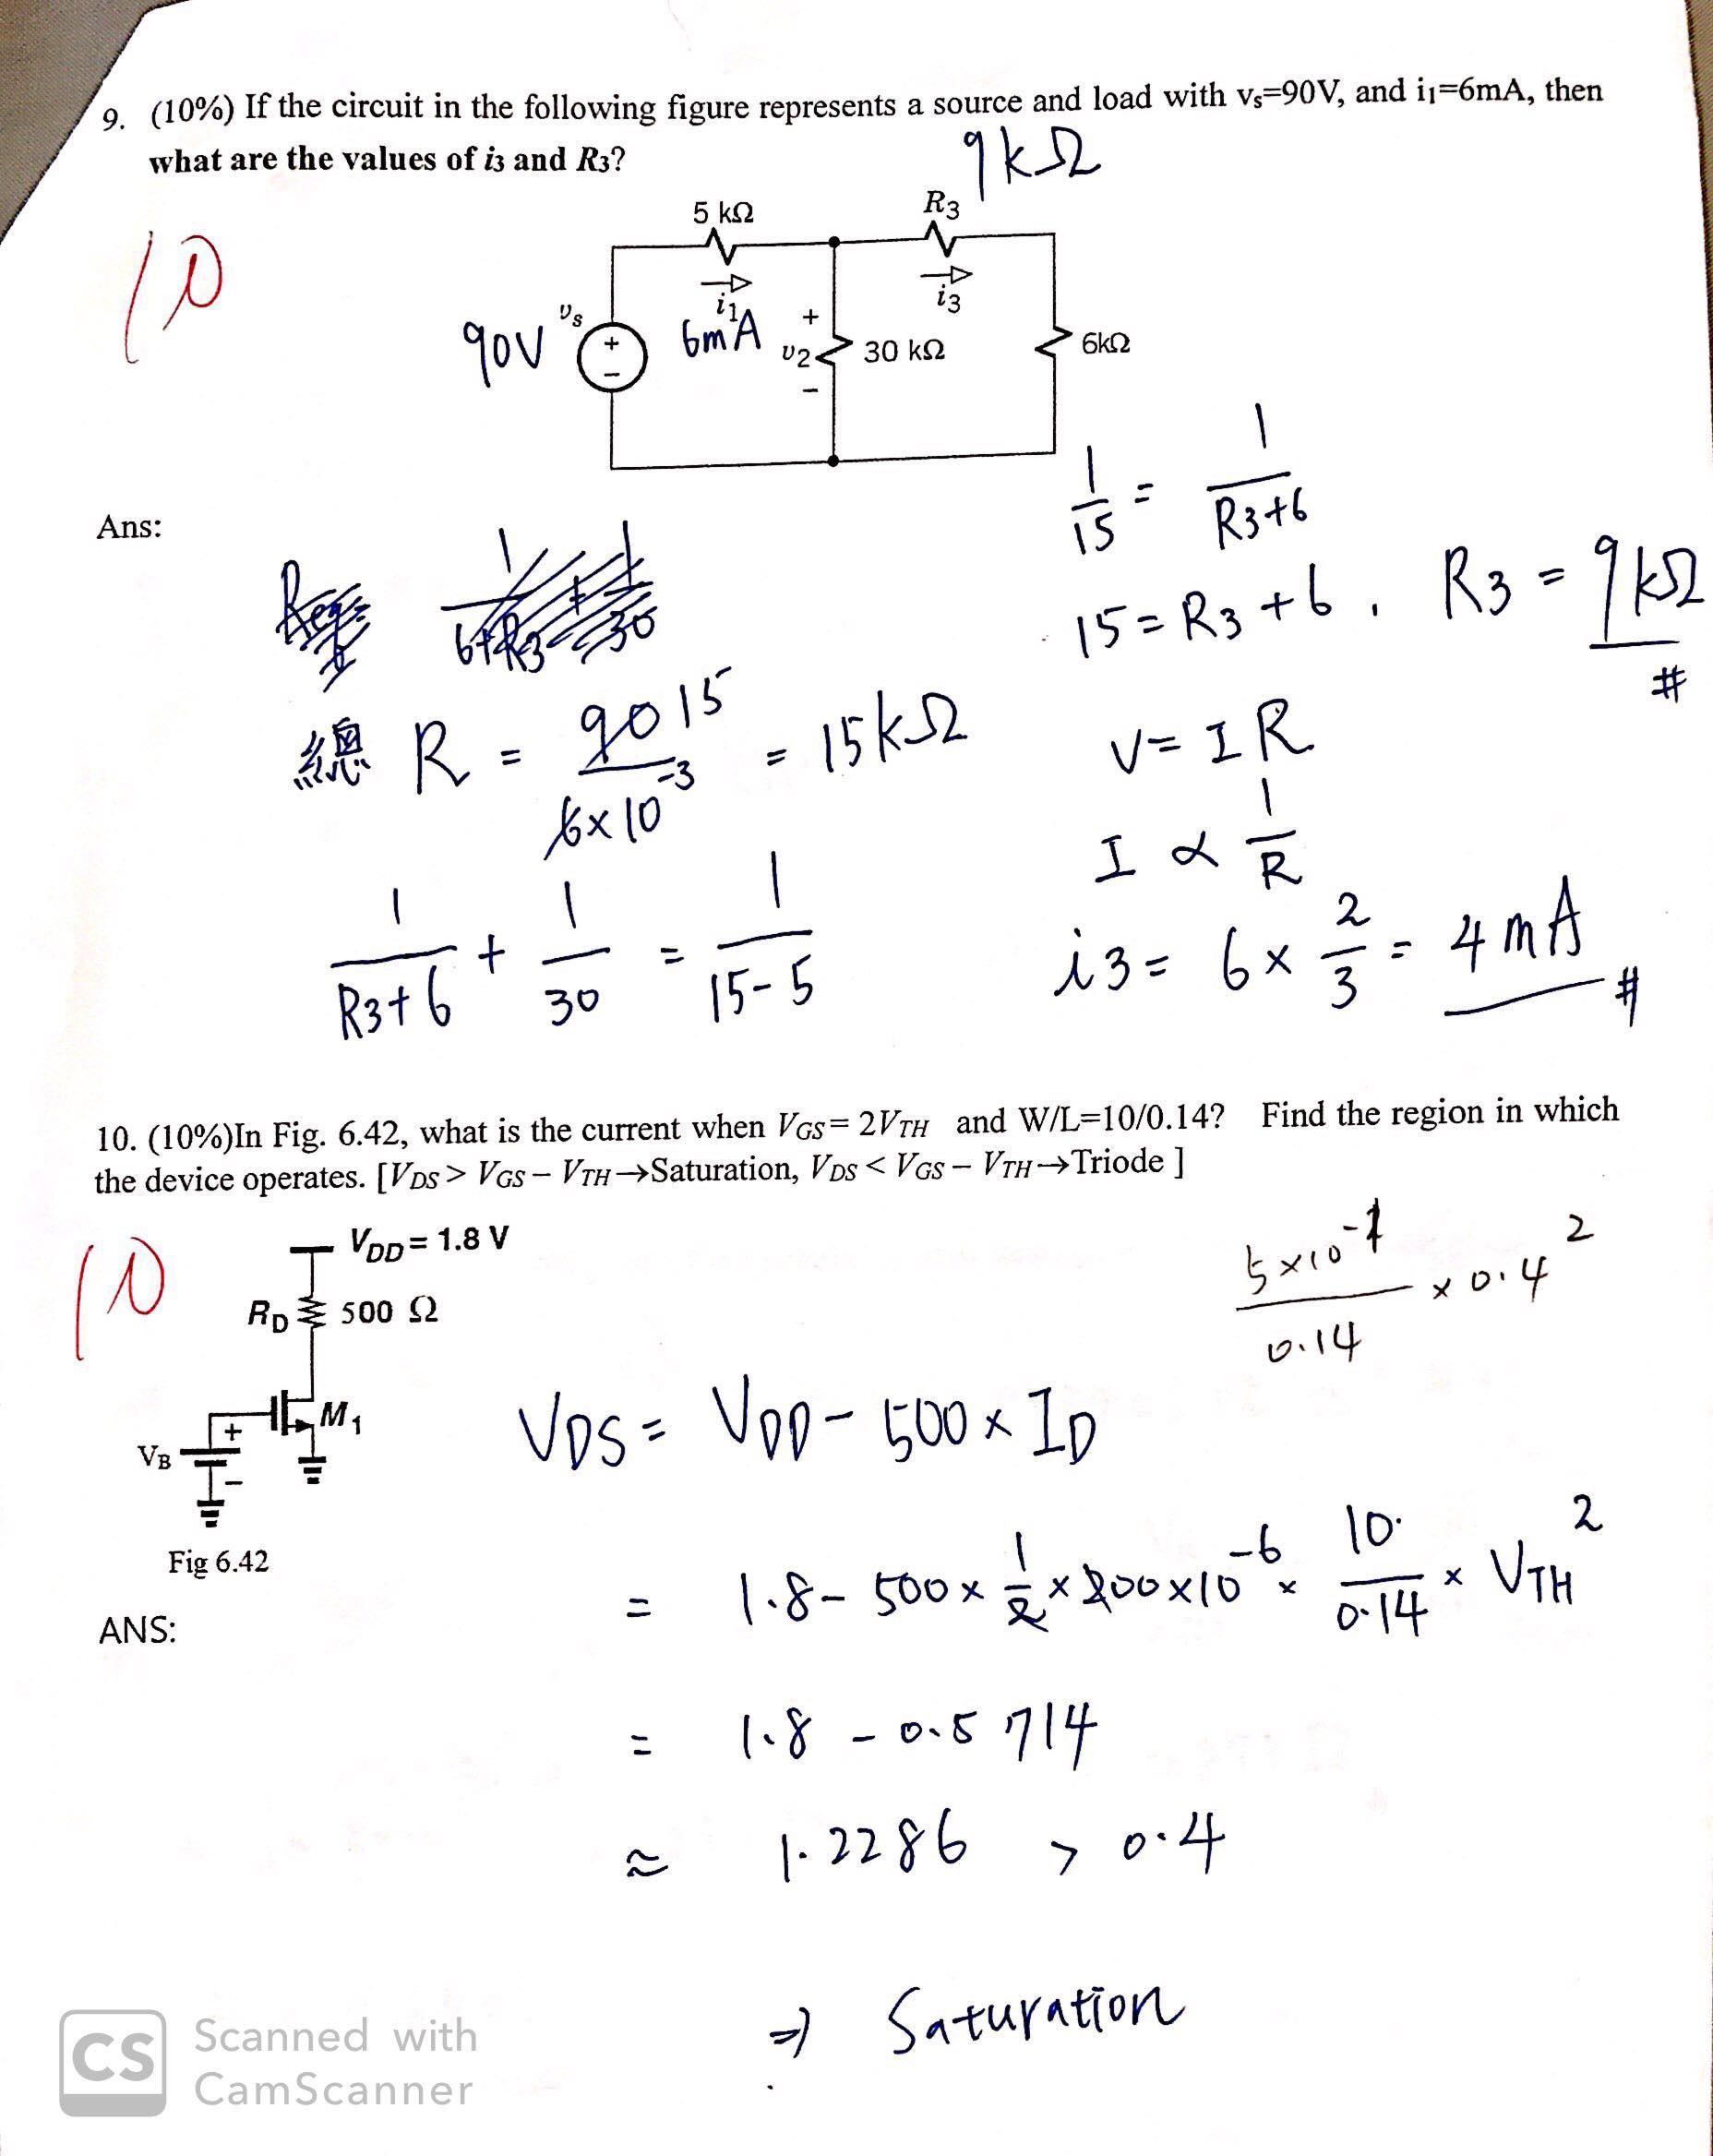 9. (10%) If the circuit in the following figure represents a source and load with vs=90V, and i1=6mA, then
what are the values of i3 and R3?
9kΩ
10
5 kΩ
R3
i1
i3
90V
vs
6mA
+
v2
-
30 kΩ
6kΩ
Ans:
1/15 = 1/(R3+6)
15=R3+6, R3=9kΩ #
總 R = 90 15/(6×10^-3) = 15kΩ
V=IR
I ∝ 1/R
1/(R3+6) + 1/30 = 1/(15-5)
i3= 6×2/3 = 4mA #
10. (10%)In Fig. 6.42, what is the current when VGS= 2VTH and W/L=10/0.14? Find the region in which
the device operates. [VDS > VGS – VTH→Saturation, VDS < VGS – VTH→Triode ]
10
VDD= 1.8 V
RD 500 Ω
M1
VB
+
-
Fig 6.42
ANS:
(5×10^-1)/0.14 × 0.4^2
VDS= VDD- 500×ID
= 1.8- 500×1/2×200×10^-6×10/0.14×VTH^2
= 1.8 - 0.5714
≈ 1.2286 > 0.4
⇒ Saturation
CS Scanned with
CamScanner